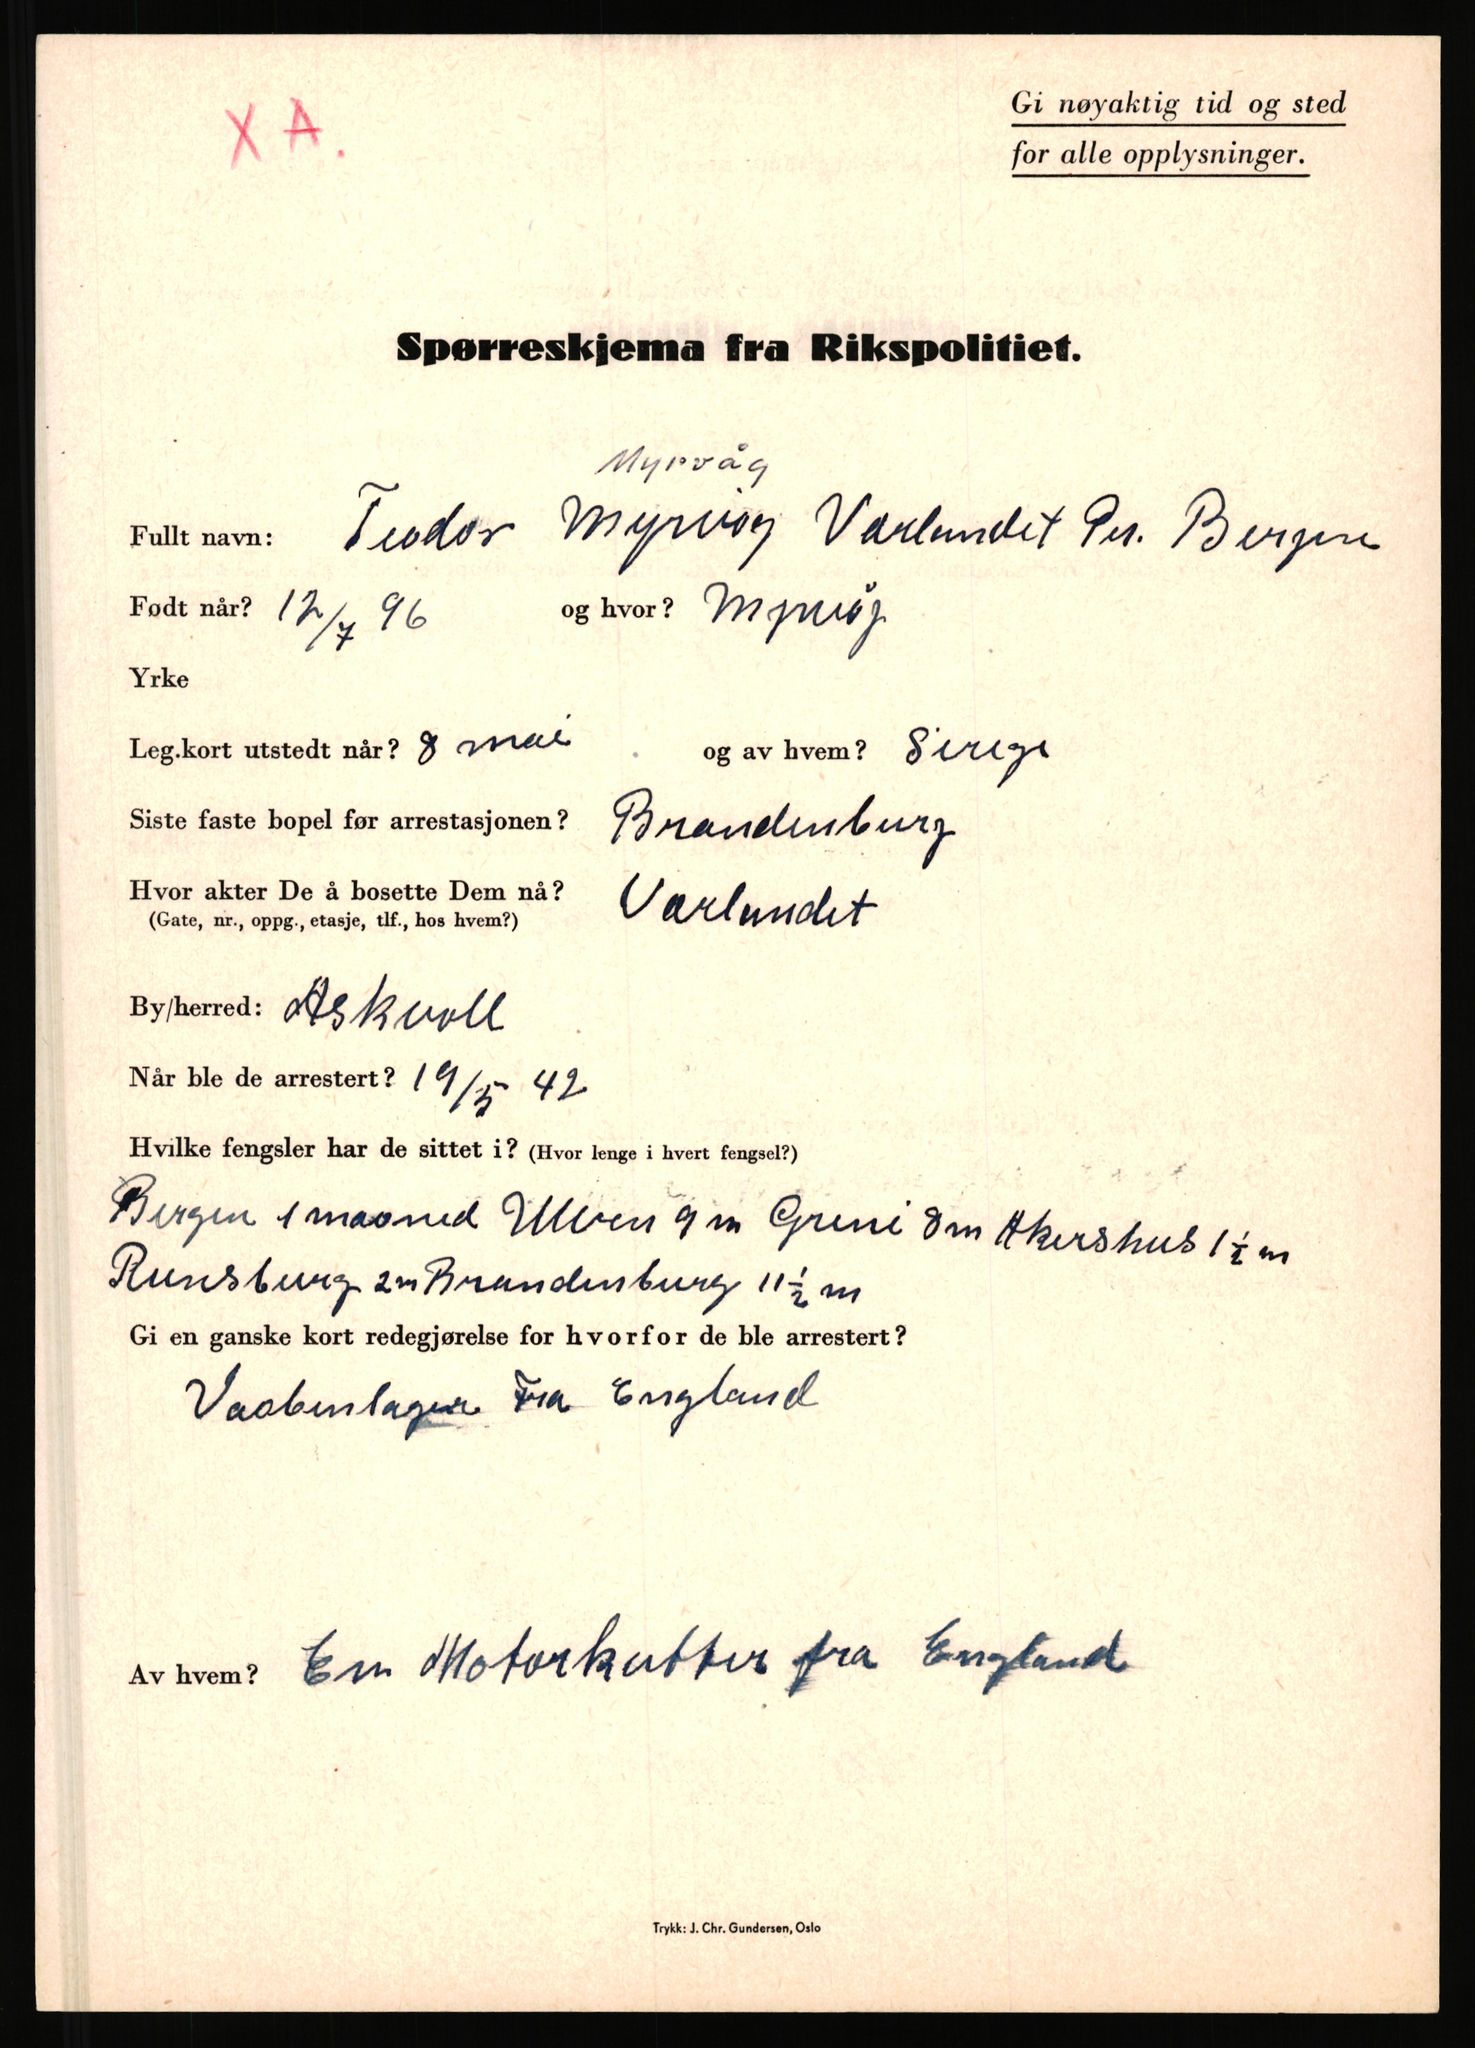 X A.
Gi nøyaktig tid og sted
for alle opplysninger.
Spørreskjema fra Rikspolitiet.
Myrvåg
Fullt navn: Teodor Myrvög Værlandet Pr. Bergen
Født når? 12/7 96 og hvor? Myrvög
Yrke
Leg.kort utstedt når? 8 mai og av hvem? Sverge
Siste faste bopel før arrestasjonen? Brandenburg
Hvor akter De å bosette Dem nå? Værlandet
(Gate, nr., oppg., etasje, tlf., hos hvem?)
By/herred: Askvoll
Når ble de arrestert? 19/5 42
Hvilke fengsler har de sittet i? (Hvor lenge i hvert fengsel?)
Bergen 1 maaned Ulven 9 m Greni 8 m Akershus 1½ m
Runsburg 2 m Brandenburg 11½ m
Gi en ganske kort redegjørelse for hvorfor de ble arrestert?
Vaabenlager Fra England
Av hvem? En Motorkutter fra England
Trykk: J. Chr. Gundersen, Oslo